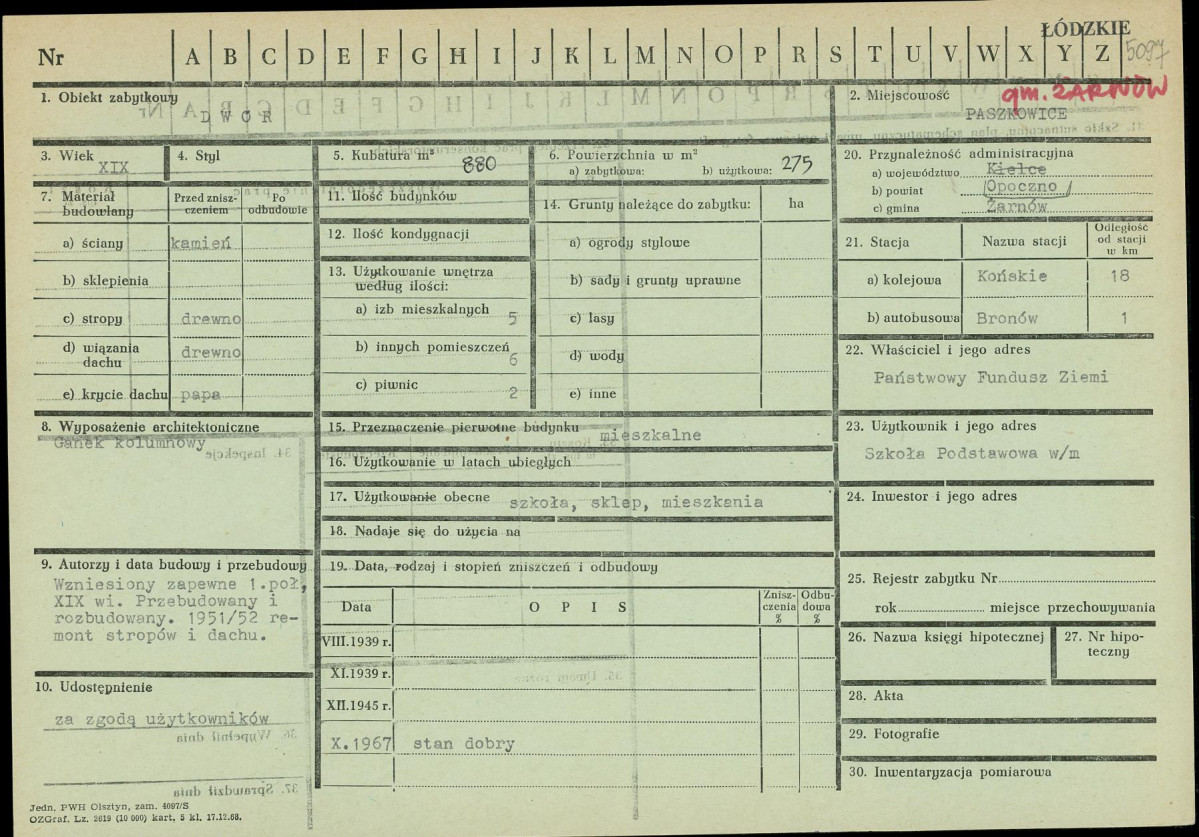 ŁÓDZKIE
Nr A B C D E F G H I J K L M N O P R S T U V W X Y Z 5097
gm. ŻARNÓW
1. Obiekt zabytkowy
DWÓR
2. Miejscowość
PASZKOWICE
3. Wiek
XIX
4. Styl
5. Kubatura m³
880
6. Powierzchnia w m²
a) zabytkowa: b) użytkowa: 275
20. Przynależność administracyjna
a) województwo Kielce
b) powiat Opoczno
c) gmina Żarnów
7. Materiał budowlany
Przed zniszczeniem
Po odbudowie
a) ściany kamień
b) sklepienia
c) stropy drewno
d) wiązania dachu drewno
e) krycie dachu papa
11. Ilość budynków
12. Ilość kondygnacji
13. Użytkowanie wnętrza
według ilości:
a) izb mieszkalnych 5
b) innych pomieszczeń 6
c) piwnic 2
14. Grunty należące do zabytku: ha
a) ogrody stylowe
b) sady i grunty uprawne
c) lasy
d) wody
e) inne
21. Stacja Nazwa stacji Odległość od stacji w km
a) kolejowa Końskie 18
b) autobusowa Bronów 1
22. Właściciel i jego adres
Państwowy Fundusz Ziemi
8. Wyposażenie architektoniczne
Ganek kolumnowy
15. Przeznaczenie pierwotne budynku mieszkalne
16. Użytkowanie w latach ubiegłych
17. Użytkowanie obecne szkoła, sklep, mieszkania
18. Nadaje się do użycia na
23. Użytkownik i jego adres
Szkoła Podstawowa w/m
24. Inwestor i jego adres
9. Autorzy i data budowy i przebudowy
Wzniesiony zapewne 1.poł,
XIX wi. Przebudowany i
rozbudowany. 1951/52 re-
mont stropów i dachu.
19. Data, rodzaj i stopień zniszczeń i odbudowy
Data OPIS Zniszczenia % Odbudowa %
VIII.1939 r.
XI.1939 r.
XII.1945 r.
X.1967 stan dobry
25. Rejestr zabytku Nr
rok miejsce przechowywania
26. Nazwa księgi hipotecznej
27. Nr hipo-
teczny
10. Udostępnienie
za zgodą użytkowników
28. Akta
29. Fotografie
30. Inwentaryzacja pomiarowa
Jedn. PWH Olsztyn, zam. 4097/S
OZGraf. Lz. 2619 (10 000) kart, 5 kl. 17.12.68.